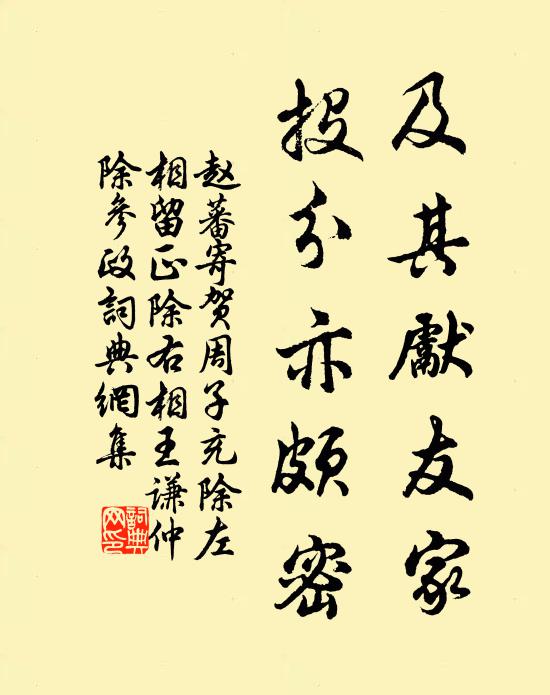 及其獻友家
投分亦頗密
赵蕃寄贺周子充除左
相留正除右相王谦仲
除参政詞典網集
詞典网印